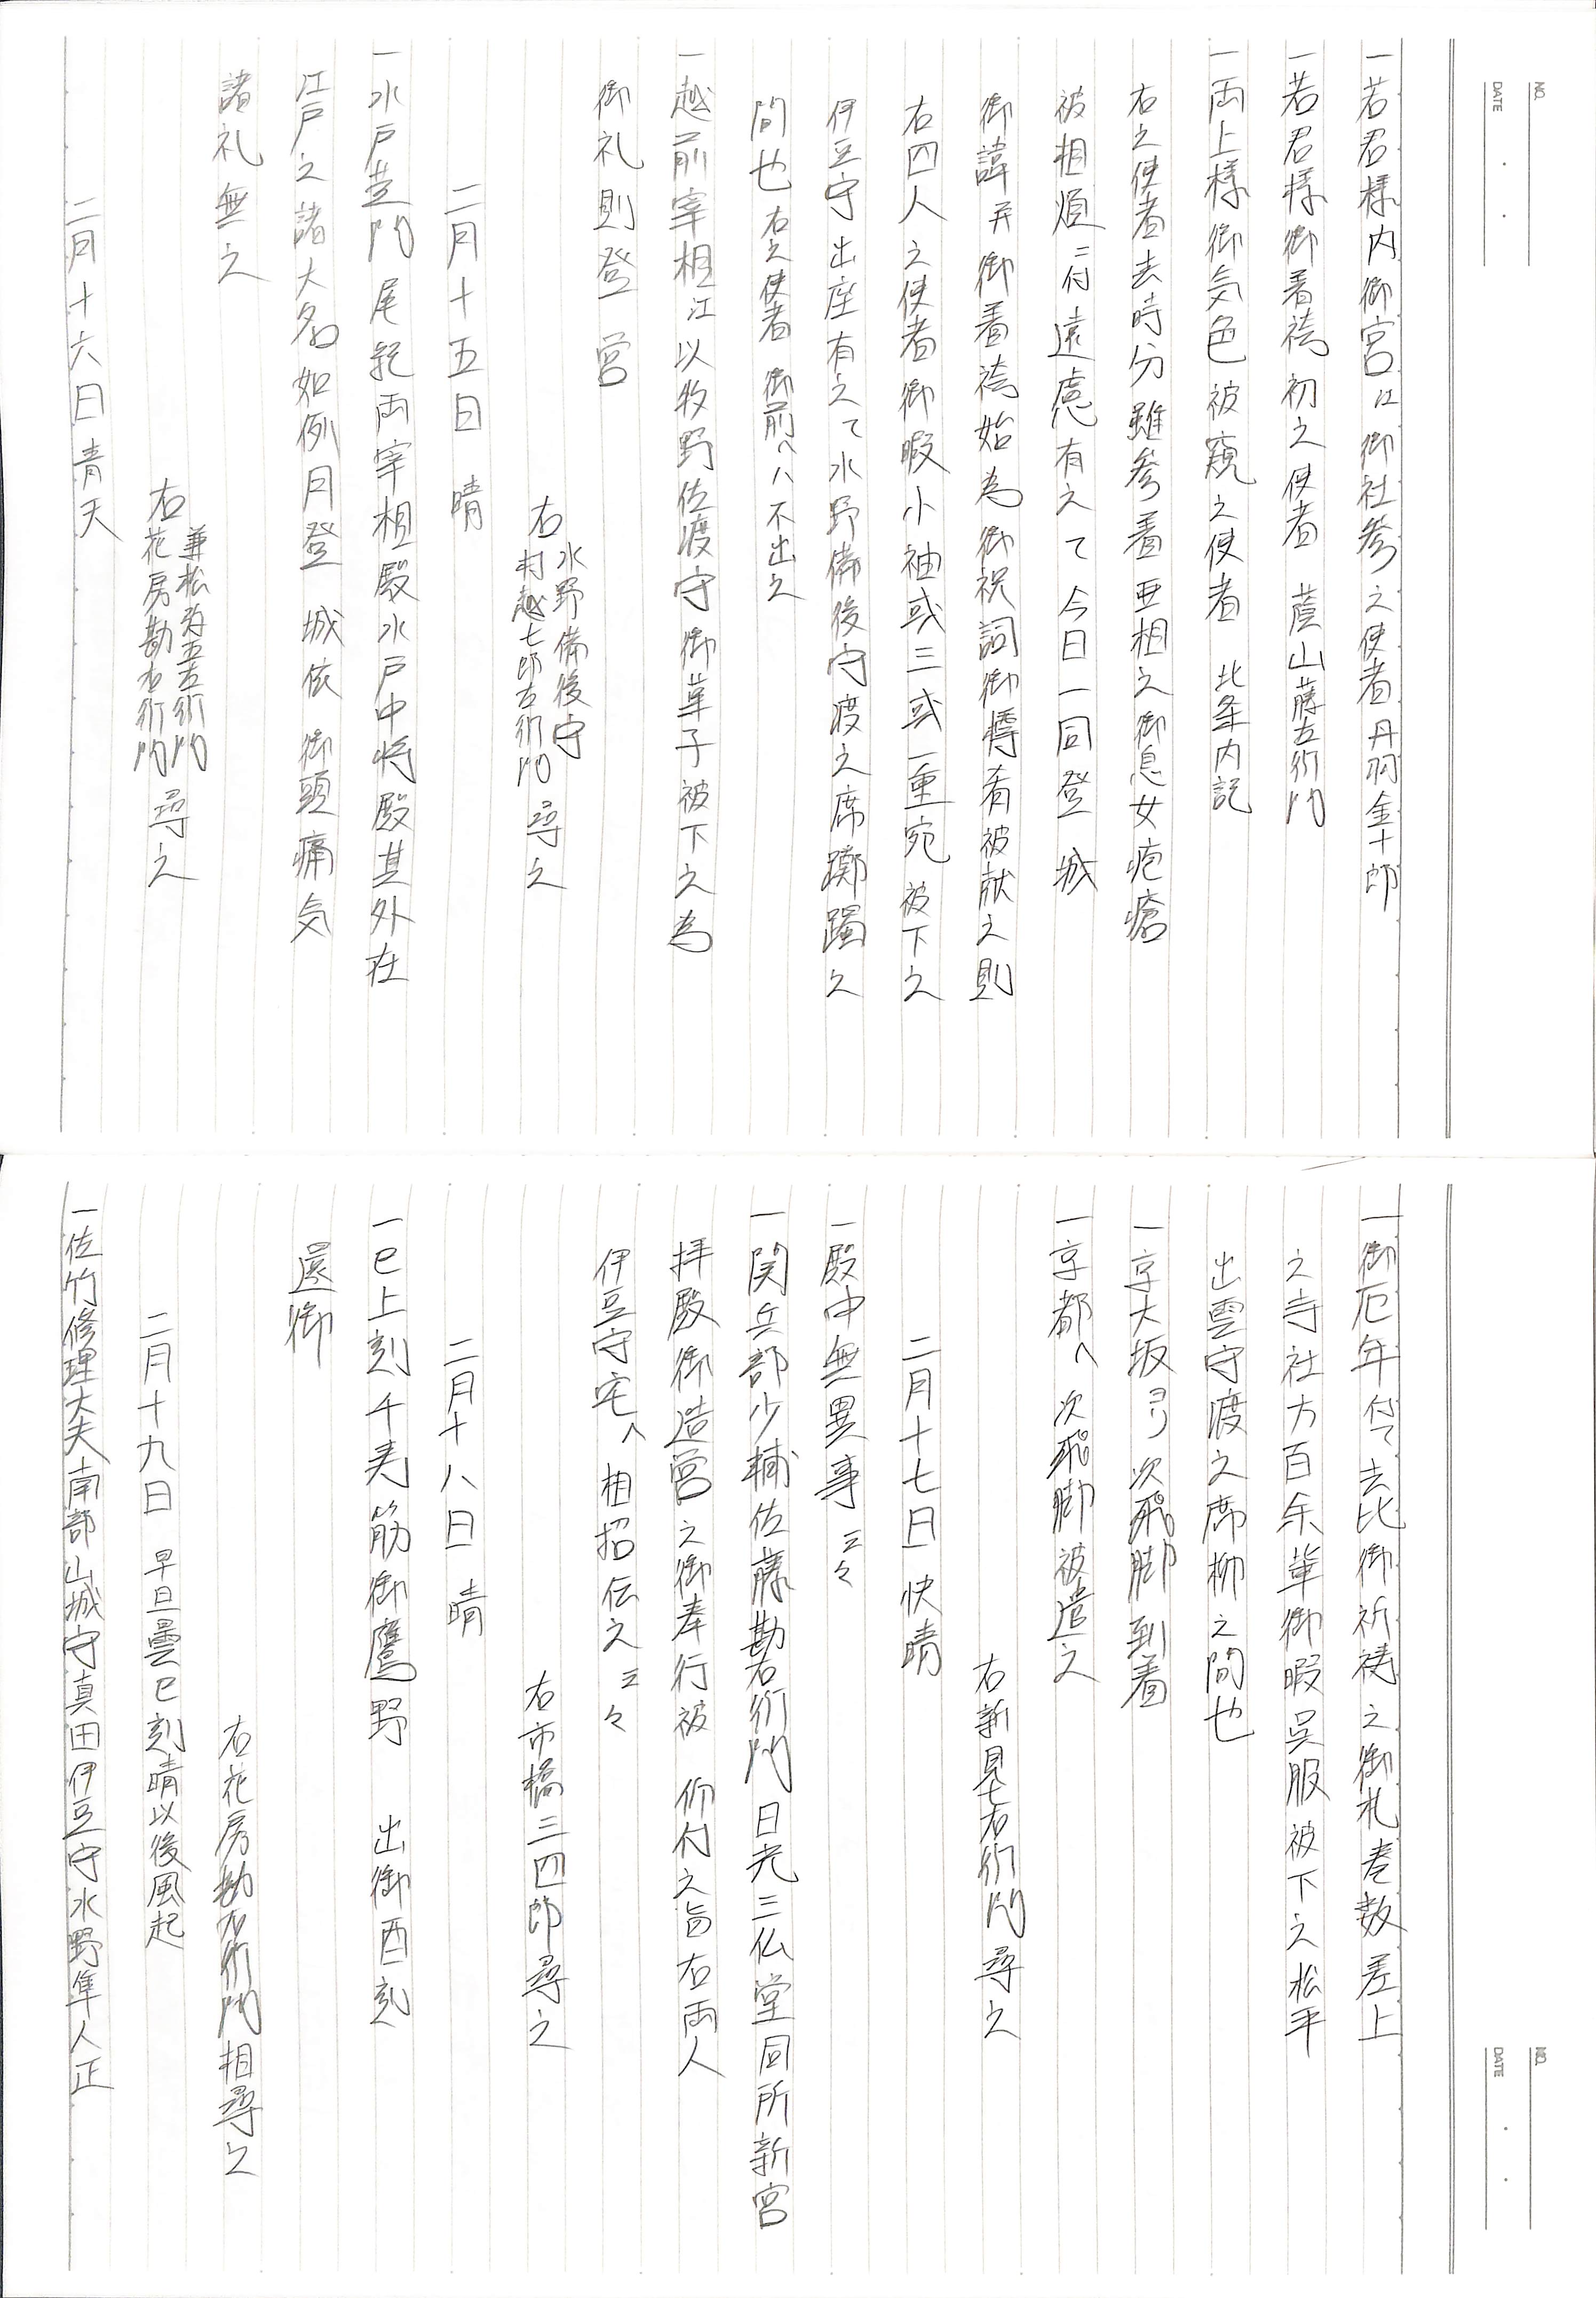 NO.
DATE
一若君様内御宮江御社参之使者丹羽金十郎
一若君様御着袴初之使者 蔭山藤左衛門
一両上様御気色被窺之使者 北条内記
右之使者去時分雖参着亜相之御息女疱瘡
被相煩ニ付遠慮有之て今日一同登 城
御諱并御着袴始為御祝詞御樽肴被献之則
右四人之使者御暇小袖或三或一重宛被下之
伊豆守出座有之て水野備後守渡之席躑躅之
間也 右之使者 御前へハ不出之
一越前宰相江以牧野佐渡守御菓子被下之為
御礼則登 営
右 水野備後守 村越七郎左衛門 尋之
二月十五日 晴
一水戸黄門尾紀両宰相殿水戸中将殿其外在
江戸之諸大名如例月登 城依 御頭痛気
諸礼無之
右 兼松弥五左衛門 花房勘右衛門 尋之
二月十六日 青天
NO.
DATE
一御厄年付て去比御祈祷之御札巻数差上
之寺社方百余輩御暇呉服被下之松平
出雲守渡之席柳之間也
一京大坂ゟ次飛脚到着
一京都へ次飛脚被遣之
右新見七右衛門尋之
二月十七日 快晴
一殿中無異事云々
一関兵部少輔佐藤勘右衛門日光三仏堂同所新宮
拝殿御造営之御奉行被 仰付之旨右両人
伊豆守宅へ相招伝之云々
右市橋三四郎尋之
二月十八日 晴
一巳上刻千寿筋御鷹野 出御酉刻
還御
右花房勘右衛門相尋之
二月十九日 早旦曇巳刻晴以後風起
一佐竹修理大夫南部山城守真田伊豆守水野隼人正